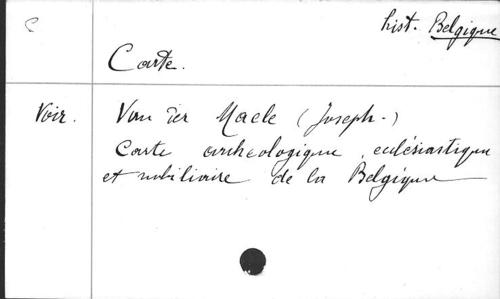 C
hist. Belgique
Carte.
Voir. Van der Maele (Joseph.)
Carte archeologique, ecclésiastique
et nobiliaire de la Belgique